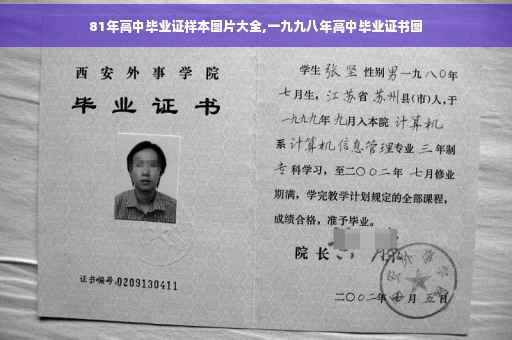 81年高中毕业证样本图片大全,一九九八年高中毕业证书图
西安外事学院
毕业证书
证书编号:0209130411
学生 张坚 性别 男 一九八〇年
七月生，江苏省 苏州 县(市)人，于
一九九九年 九月入本院 计算机
系 计算机信息管理 专业 三 年制
专科学习，至二〇〇二年 七月修业
期满，学完教学计划规定的全部课程，
成绩合格，准予毕业。
院长
二〇〇二年 月 五日